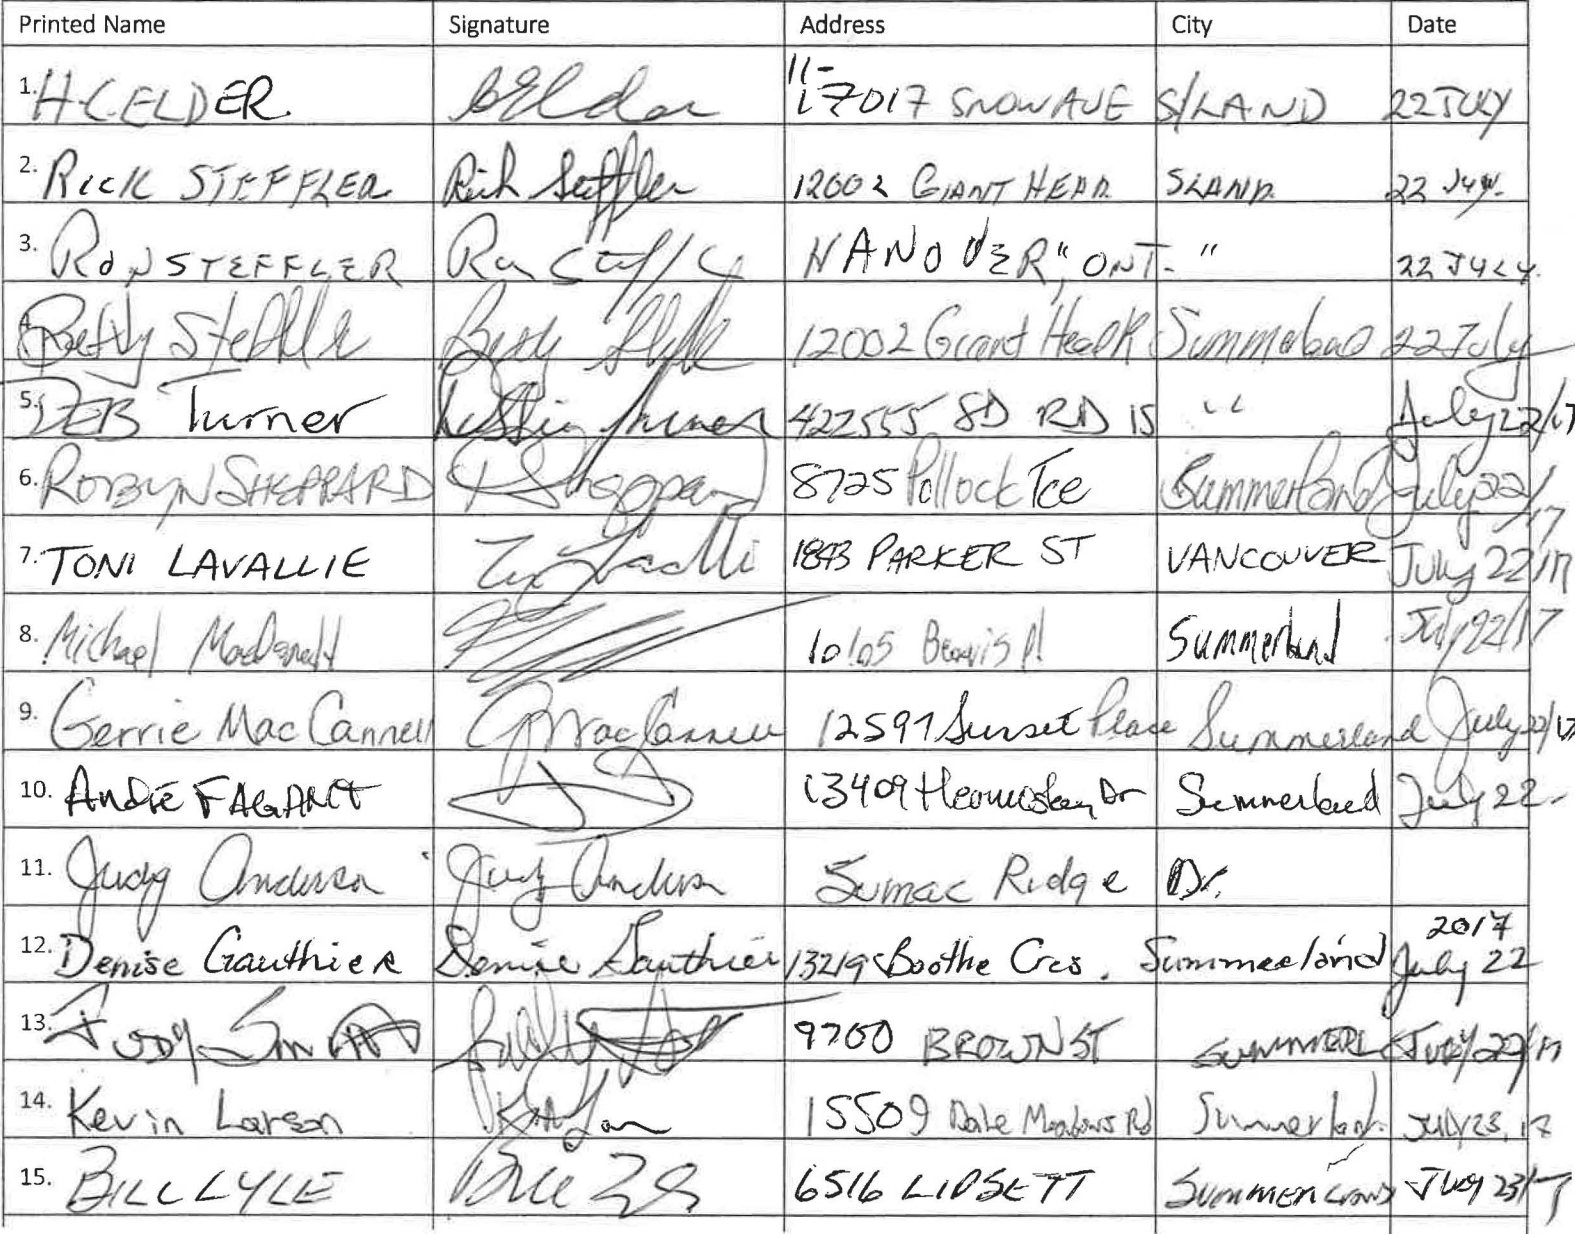 Printed Name Signature Address City Date
1. H.C. ELDER 11-17017 SNOW AVE S/LAND 22 JULY
2. RICK STEFFLER Rick Steffler 12002 GIANT HEAD SLAND 22 July
3. RON STEFFLER HANOVER, ONT. " 22 JULY
4. Betty Steffler 12002 Giant Head Summerland 22 July
5. DEB Turner 422555 SD RD 15 " July 22/17
6. ROBYN SHEPPARD R Sheppard 8725 Pollock Tce Summerland July 22/17
7. TONI LAVALLIE 1843 PARKER ST VANCOUVER July 22/17
8. Michael MacDonald 10105 Beavis Pl Summerland July 22/17
9. Gerrie MacCannell G MacCannell 12597 Sunset Place Summerland July 22/17
10. ANDRÉ 13409 Dr Summerland July 22
11. Judy Anderson Judy Anderson Sumac Ridge Dr.
12. Denise Gauthier Denise Gauthier 13219 Boothe Cres. Summerland July 22 2017
13. JUDY 9700 BROWN ST SUMMERL July 22/17
14. Kevin Larson 15509 Dale Meadows Rd Summerland July 23, 17
15. BILL LYLE 6516 LIPSETT Summerland July 23/17